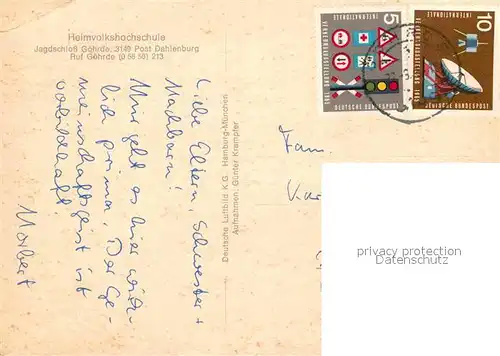 Heimvolkshochschule
Jagdschloß Göhrde, 3149 Post Dahlenburg
Ruf Göhrde (0 58 55) 213
Liebe Eltern, Schwester +
Nachbarn!
Mir geht es hier wirk-
lich prima. Der Ge-
meinschaftsgeist ist
vorbildhaft
Norbert
Deutsche Luftbild K.G. Hamburg-München
Aufnahmen: Günter Krampfer
5
INTERNATIONALE
VERKEHRSAUSSTELLUNG 1965
DEUTSCHE BUNDESPOST
10
INTERNATIONALE
VERKEHRSAUSSTELLUNG 1965
DEUTSCHE BUNDESPOST
Fam.
privacy protection